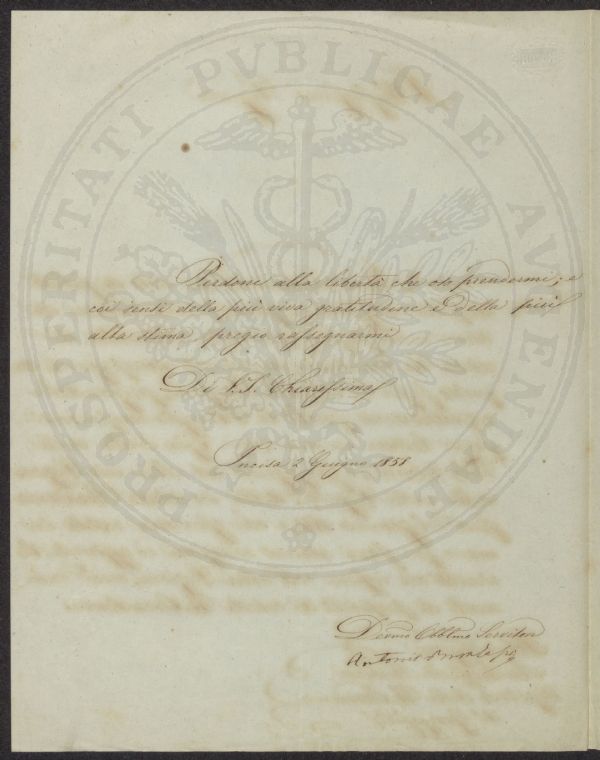 PROSPERITATI PVBLICAE AVGENDAE
Perdoni alla libertà che oso prendermi; e
coi sensi della più viva gratitudine e della più
alta stima pregio rassegnarmi
Di V.S. Chiarissima
Incisa 2 Giugno 1858
Devmo Obblmo Servitore
Antonio